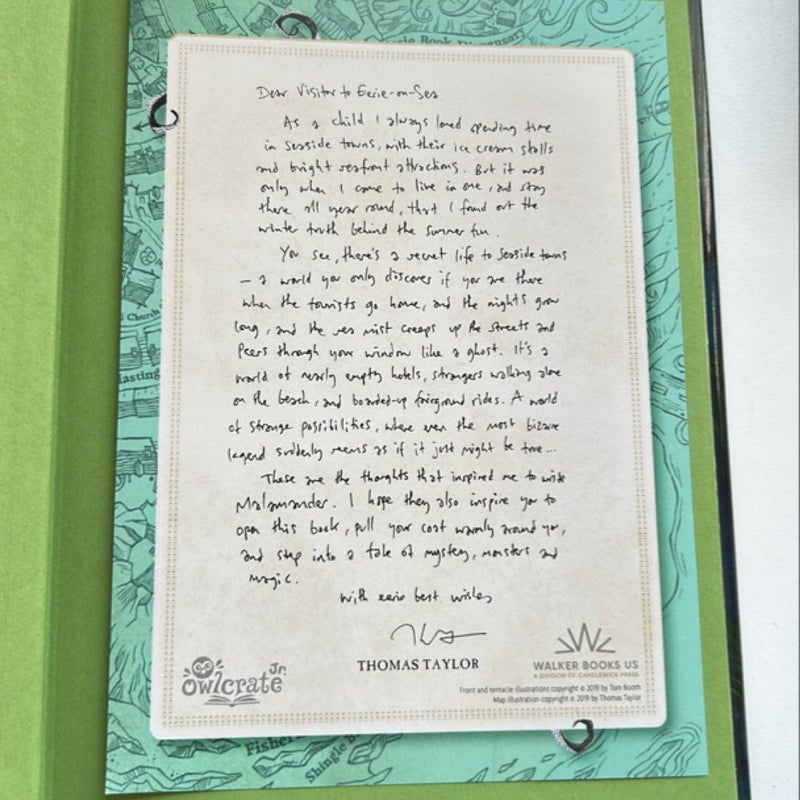 Eerie Book Dispensary
Dear Visitor to Eerie-on-Sea
As a child I always loved spending time
in seaside towns, with their ice cream stalls
and bright seafront attractions. But it was
only when I came to live in one, and stay
there all year round, that I found out the
winter truth behind the summer fun.
You see, there's a secret life to seaside towns
– a world you only discover if you are there
when the tourists go home, and the nights grow
long, and the sea mist creeps up the streets and
peers through your window like a ghost. It's a
world of nearly empty hotels, strangers walking alone
on the beach, and boarded-up fairground rides. A world
of strange possibilities, where even the most bizarre
legend suddenly seems as if it just might be true...
These are the thoughts that inspired me to write
Malamander. I hope they also inspire you to
open this book, pull your coat warmly around you,
and step into a tale of mystery, monsters and
magic.
With eerie best wishes
THOMAS TAYLOR
OWLCRATE Jr.
WALKER BOOKS US
A DIVISION OF CANDLEWICK PRESS
Front and tentacle illustrations copyright © 2019 by Tom Booth
Map illustration copyright © 2019 by Thomas Taylor
Church
Shingle